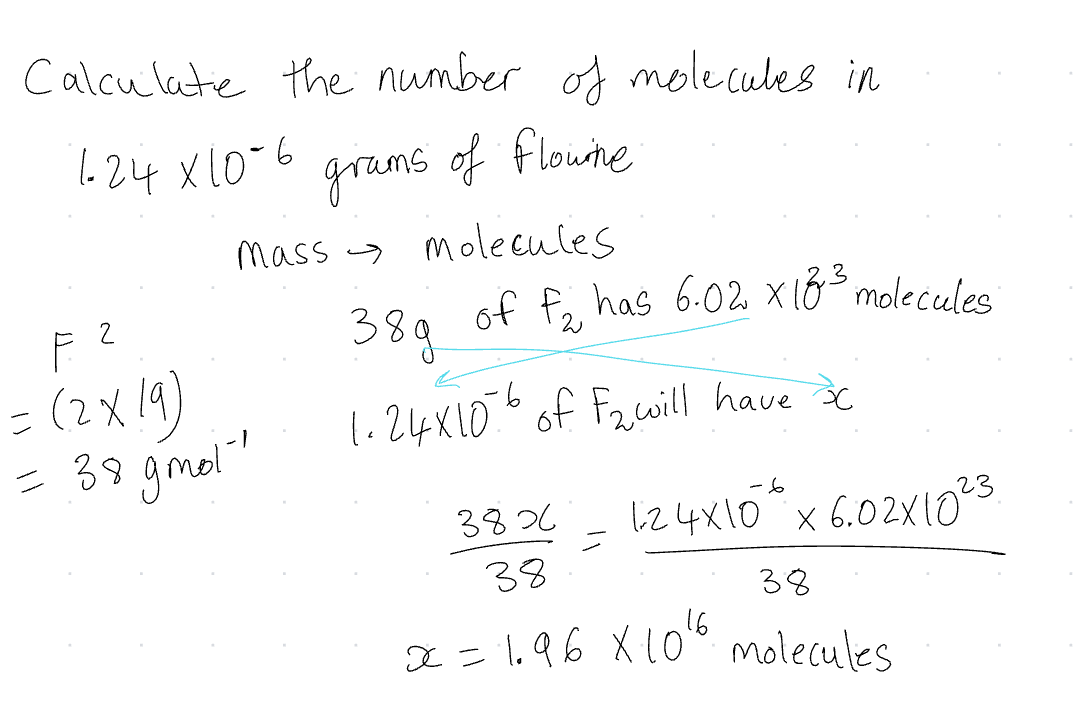 Calculate the number of molecules in
1.24 X10⁻⁶ grams of flourine
mass → molecules
38g of F₂ has 6.02 X10²³ molecules
F 2
= (2X19)
= 38 gmol⁻¹
1.24X10⁻⁶ of F₂ will have x
38x/38 = 1.24X10⁻⁶ x 6.02X10²³/38
x = 1.96 X10¹⁶ molecules